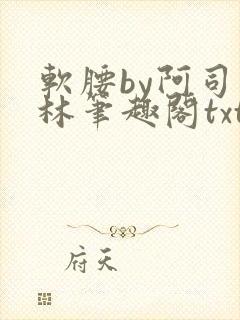 軟腰by阿司
林筆趣閣txt
府天